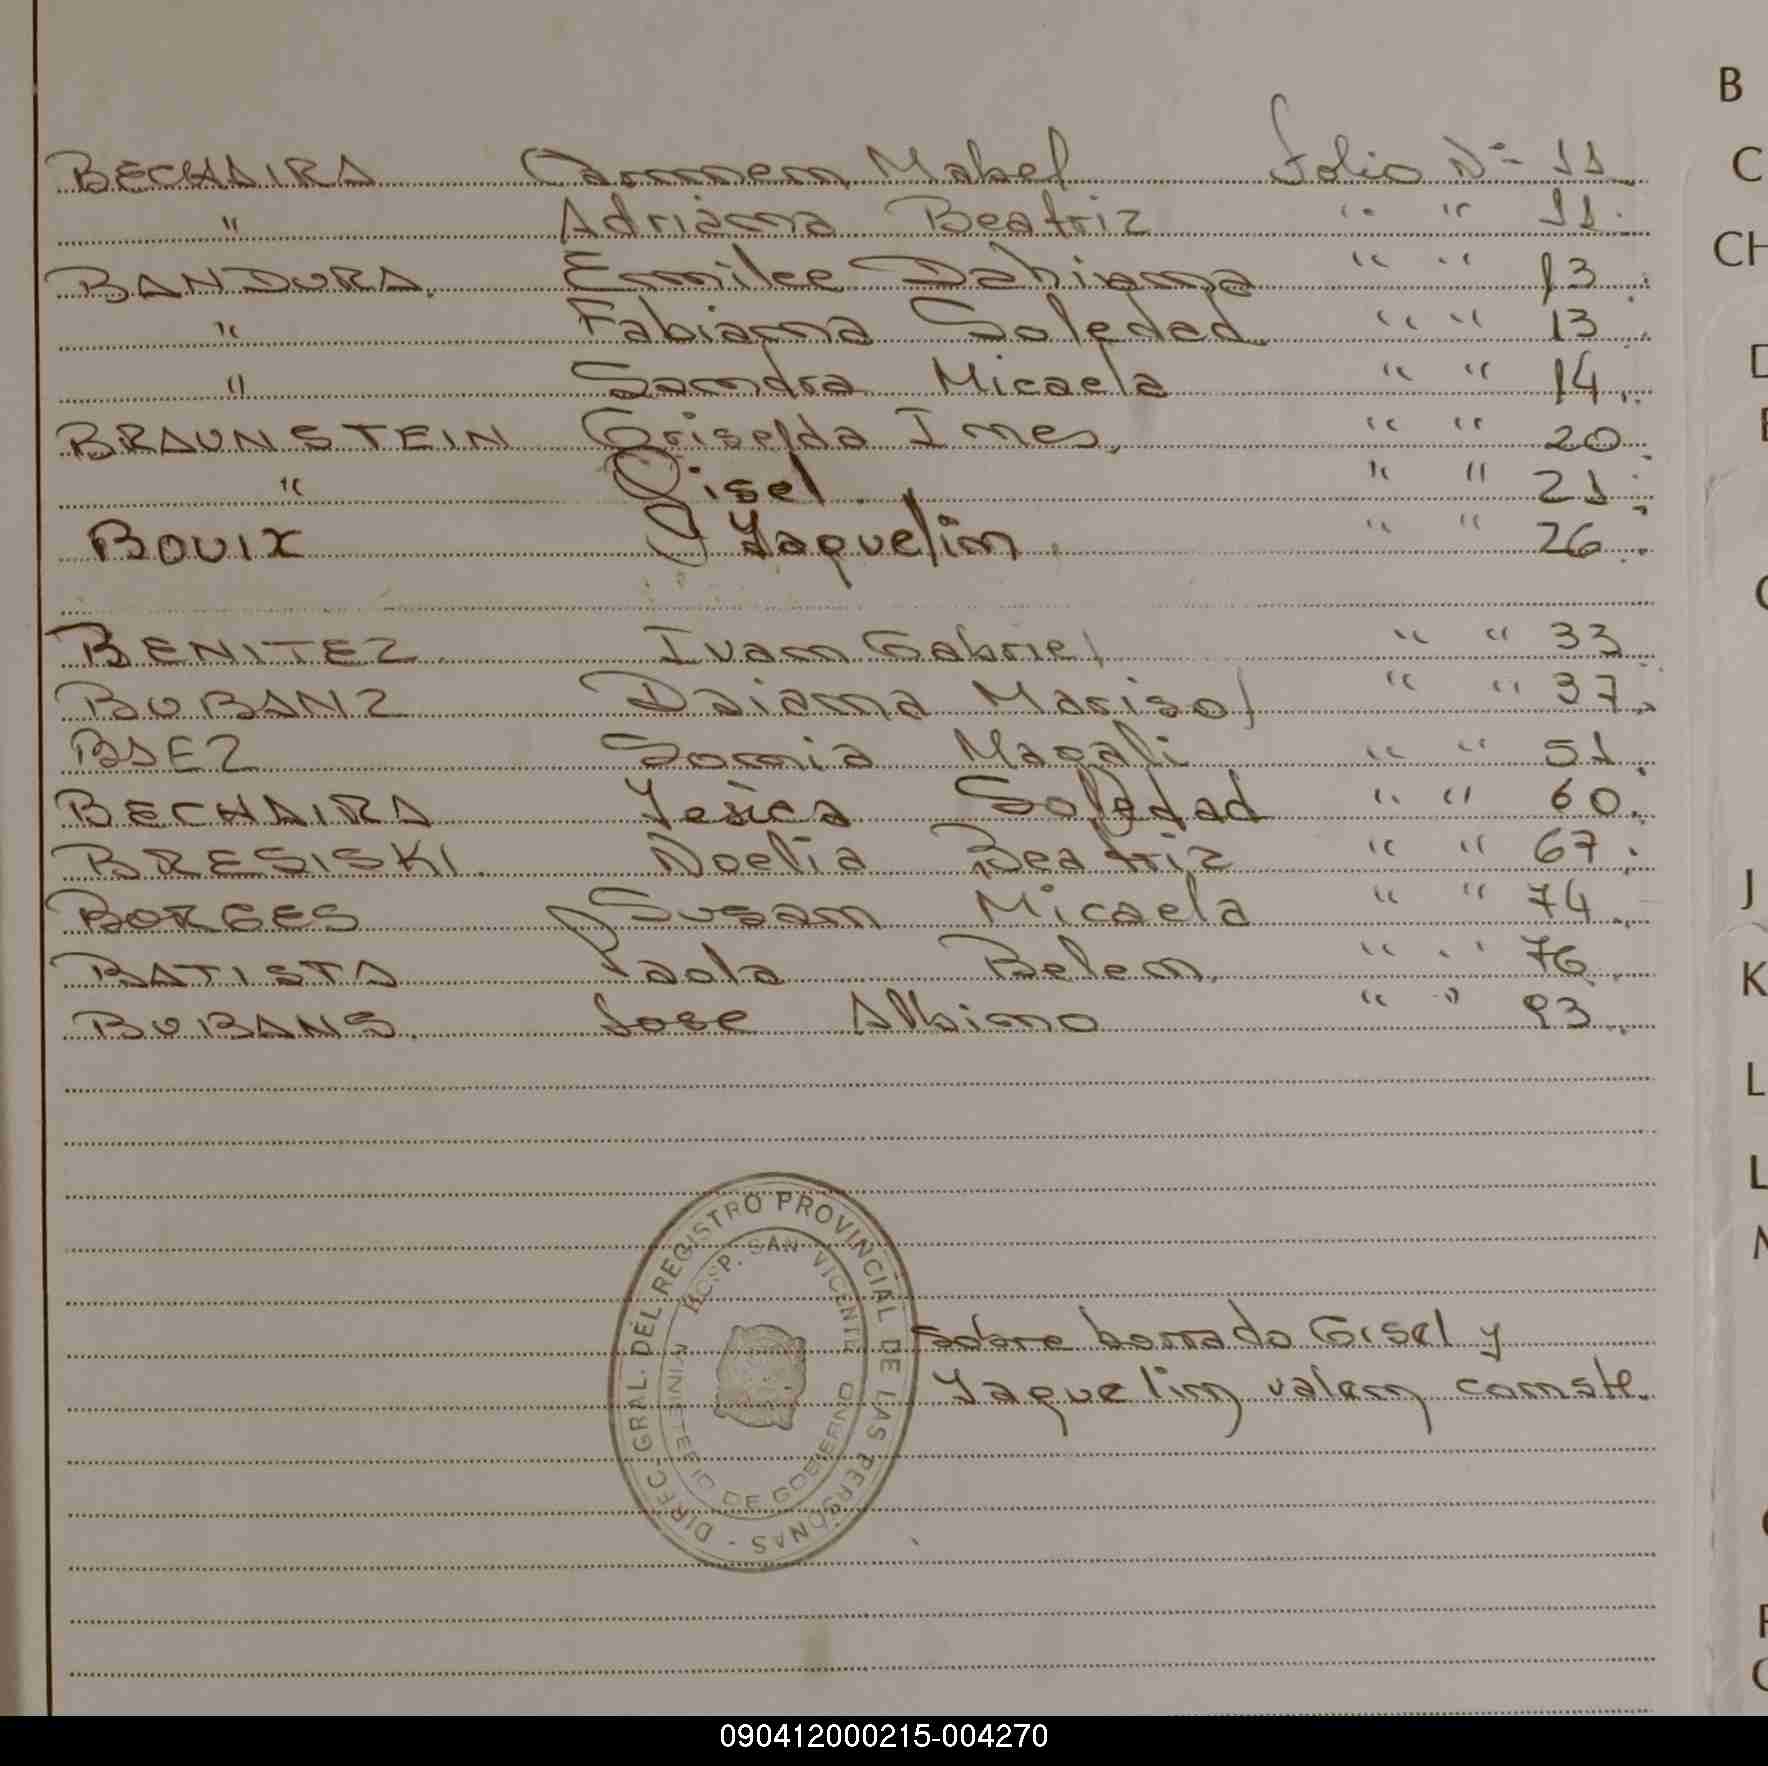 B
BECHAIRA Carmen Mabel Folio Nº 11
" Adriana Beatriz " " 11.
C
BANDURA. Emilce Dahiana " " 13.
CH
" Fabiana Soledad " " 13.
" Sandra Micaela " " 14.
BRAUNSTEIN Griselda Ines, " " 20.
" Gisel " " 21.
BOUIX Yaquelin " " 26.
BENITEZ Ivan Gabriel " " 33
BUBANZ Daiana Marisol " " 37.
BAEZ Sonia Magali " " 51.
BECHAIRA Yesica Soledad " " 60.
BRESISKI. Noelia Beatriz " " 67.
J
BORGES Susan Micaela " " 74.
BATISTA Paola Belen. " " 76.
K
BUBANS. Jose Albino " " 93.
L
L
DIREC. GRAL. DEL REGISTRO PROVINCIAL DE LAS PERSONAS -
HOSP. SAN VICENTE
MINISTERIO DE GOBIERNO
Sobre borrado Gisel y
Yaquelin valen conste.
090412000215-004270